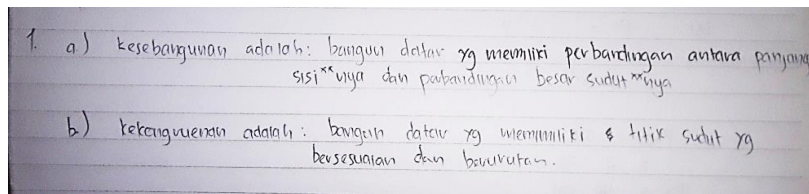 1. a) kesebangunan adalah : bangun datar yg memiliki perbandingan antara panjang
sisi**nya dan perbandingan besar sudut**nya
b) kekonguenan adalah : bangun datar yg memimiliki titik sudut yg
bersesuaian dan berurutan.